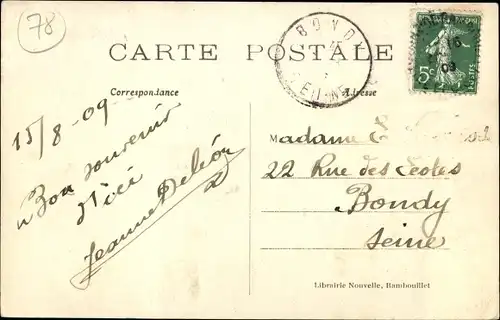 78
CARTE POSTALE
BONDY
SEINE
5c
Correspondance
Adresse
15/8-09
Bon souvenir
d'ici
Jeanne
Madame
22 Rue des Écoles
Bondy
Seine
Librairie Nouvelle, Rambouillet